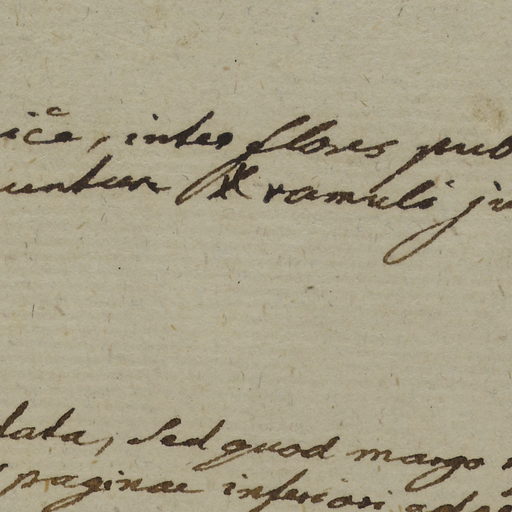 icē, inter flores pub
untur & ramuli ju
lata, sed quod margo
paginae inferiori ad